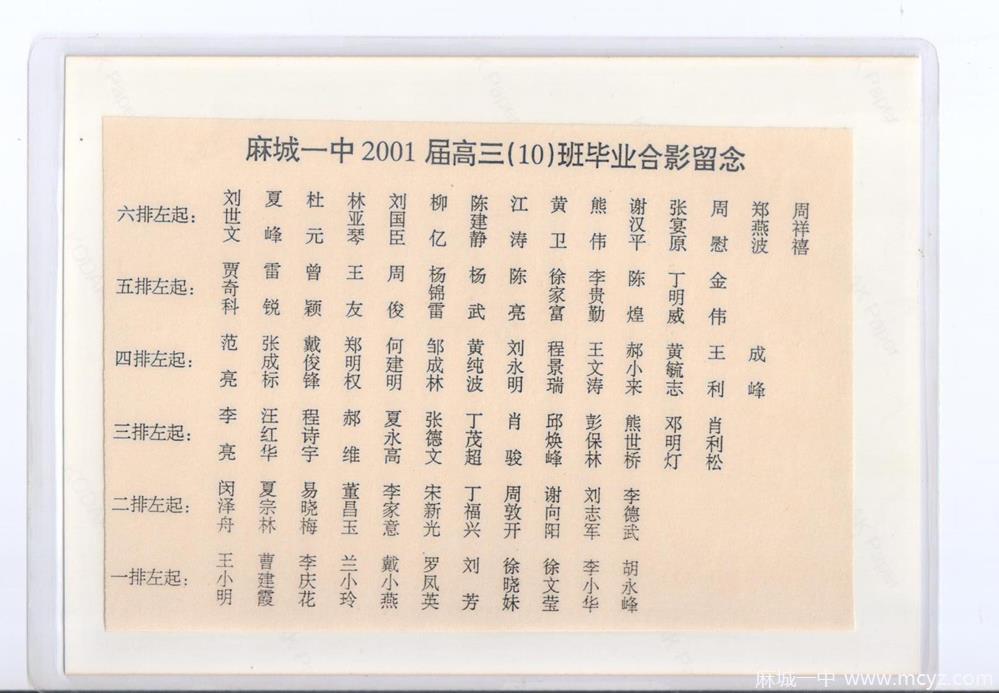 麻城一中2001届高三(10)班毕业合影留念
六排左起： 刘世文 夏峰 杜元 林亚琴 刘国臣 柳亿 陈建静 江涛 黄卫 熊伟 谢汉平 张宴原 周慰 郑燕波 周祥禧
五排左起： 贾奇科 雷锐 曾颖 王友 周俊 杨锦雷 杨武 陈亮 徐家富 李贵勤 陈煌 丁明威 金伟
四排左起： 范亮 张成标 戴俊锋 郑明权 何建明 邹成林 黄纯波 刘永明 程景瑞 王文涛 郝小来 黄毓志 王利 成峰
三排左起： 李亮 汪红华 程诗宇 郝维 夏永高 张德文 丁茂超 肖骏 邱焕峰 彭保林 熊世桥 邓明灯 肖利松
二排左起： 闵泽舟 夏宗林 易晓梅 董昌玉 李家意 宋新光 丁福兴 周敦开 谢向阳 刘志军 李德武
一排左起： 王小明 曹建霞 李庆花 兰小玲 戴小燕 罗凤英 刘芳 徐晓妹 徐文莹 李小华 胡永峰
麻城一中 www.mcyz.com